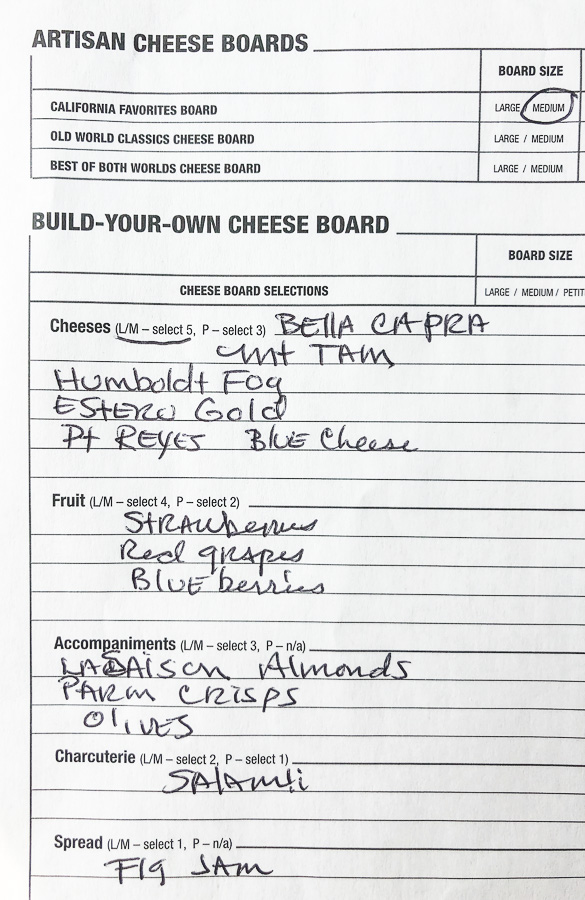 ARTISAN CHEESE BOARDS
BOARD SIZE
CALIFORNIA FAVORITES BOARD LARGE / MEDIUM
OLD WORLD CLASSICS CHEESE BOARD LARGE / MEDIUM
BEST OF BOTH WORLDS CHEESE BOARD LARGE / MEDIUM
BUILD-YOUR-OWN CHEESE BOARD
BOARD SIZE
CHEESE BOARD SELECTIONS LARGE / MEDIUM / PETIT
Cheeses (L/M – select 5, P – select 3) BELLA CAPRA
Mt TAM
Humboldt Fog
ESTERO Gold
Pt REYES BLUE Cheese
Fruit (L/M – select 4, P – select 2)
STRAWberries
Red grapes
BLUE berries
Accompaniments (L/M – select 3, P – n/a)
Almonds
PARM CRISPS
OLIVES
Charcuterie (L/M – select 2, P – select 1)
SALAMI
Spread (L/M – select 1, P – n/a)
FIG JAM